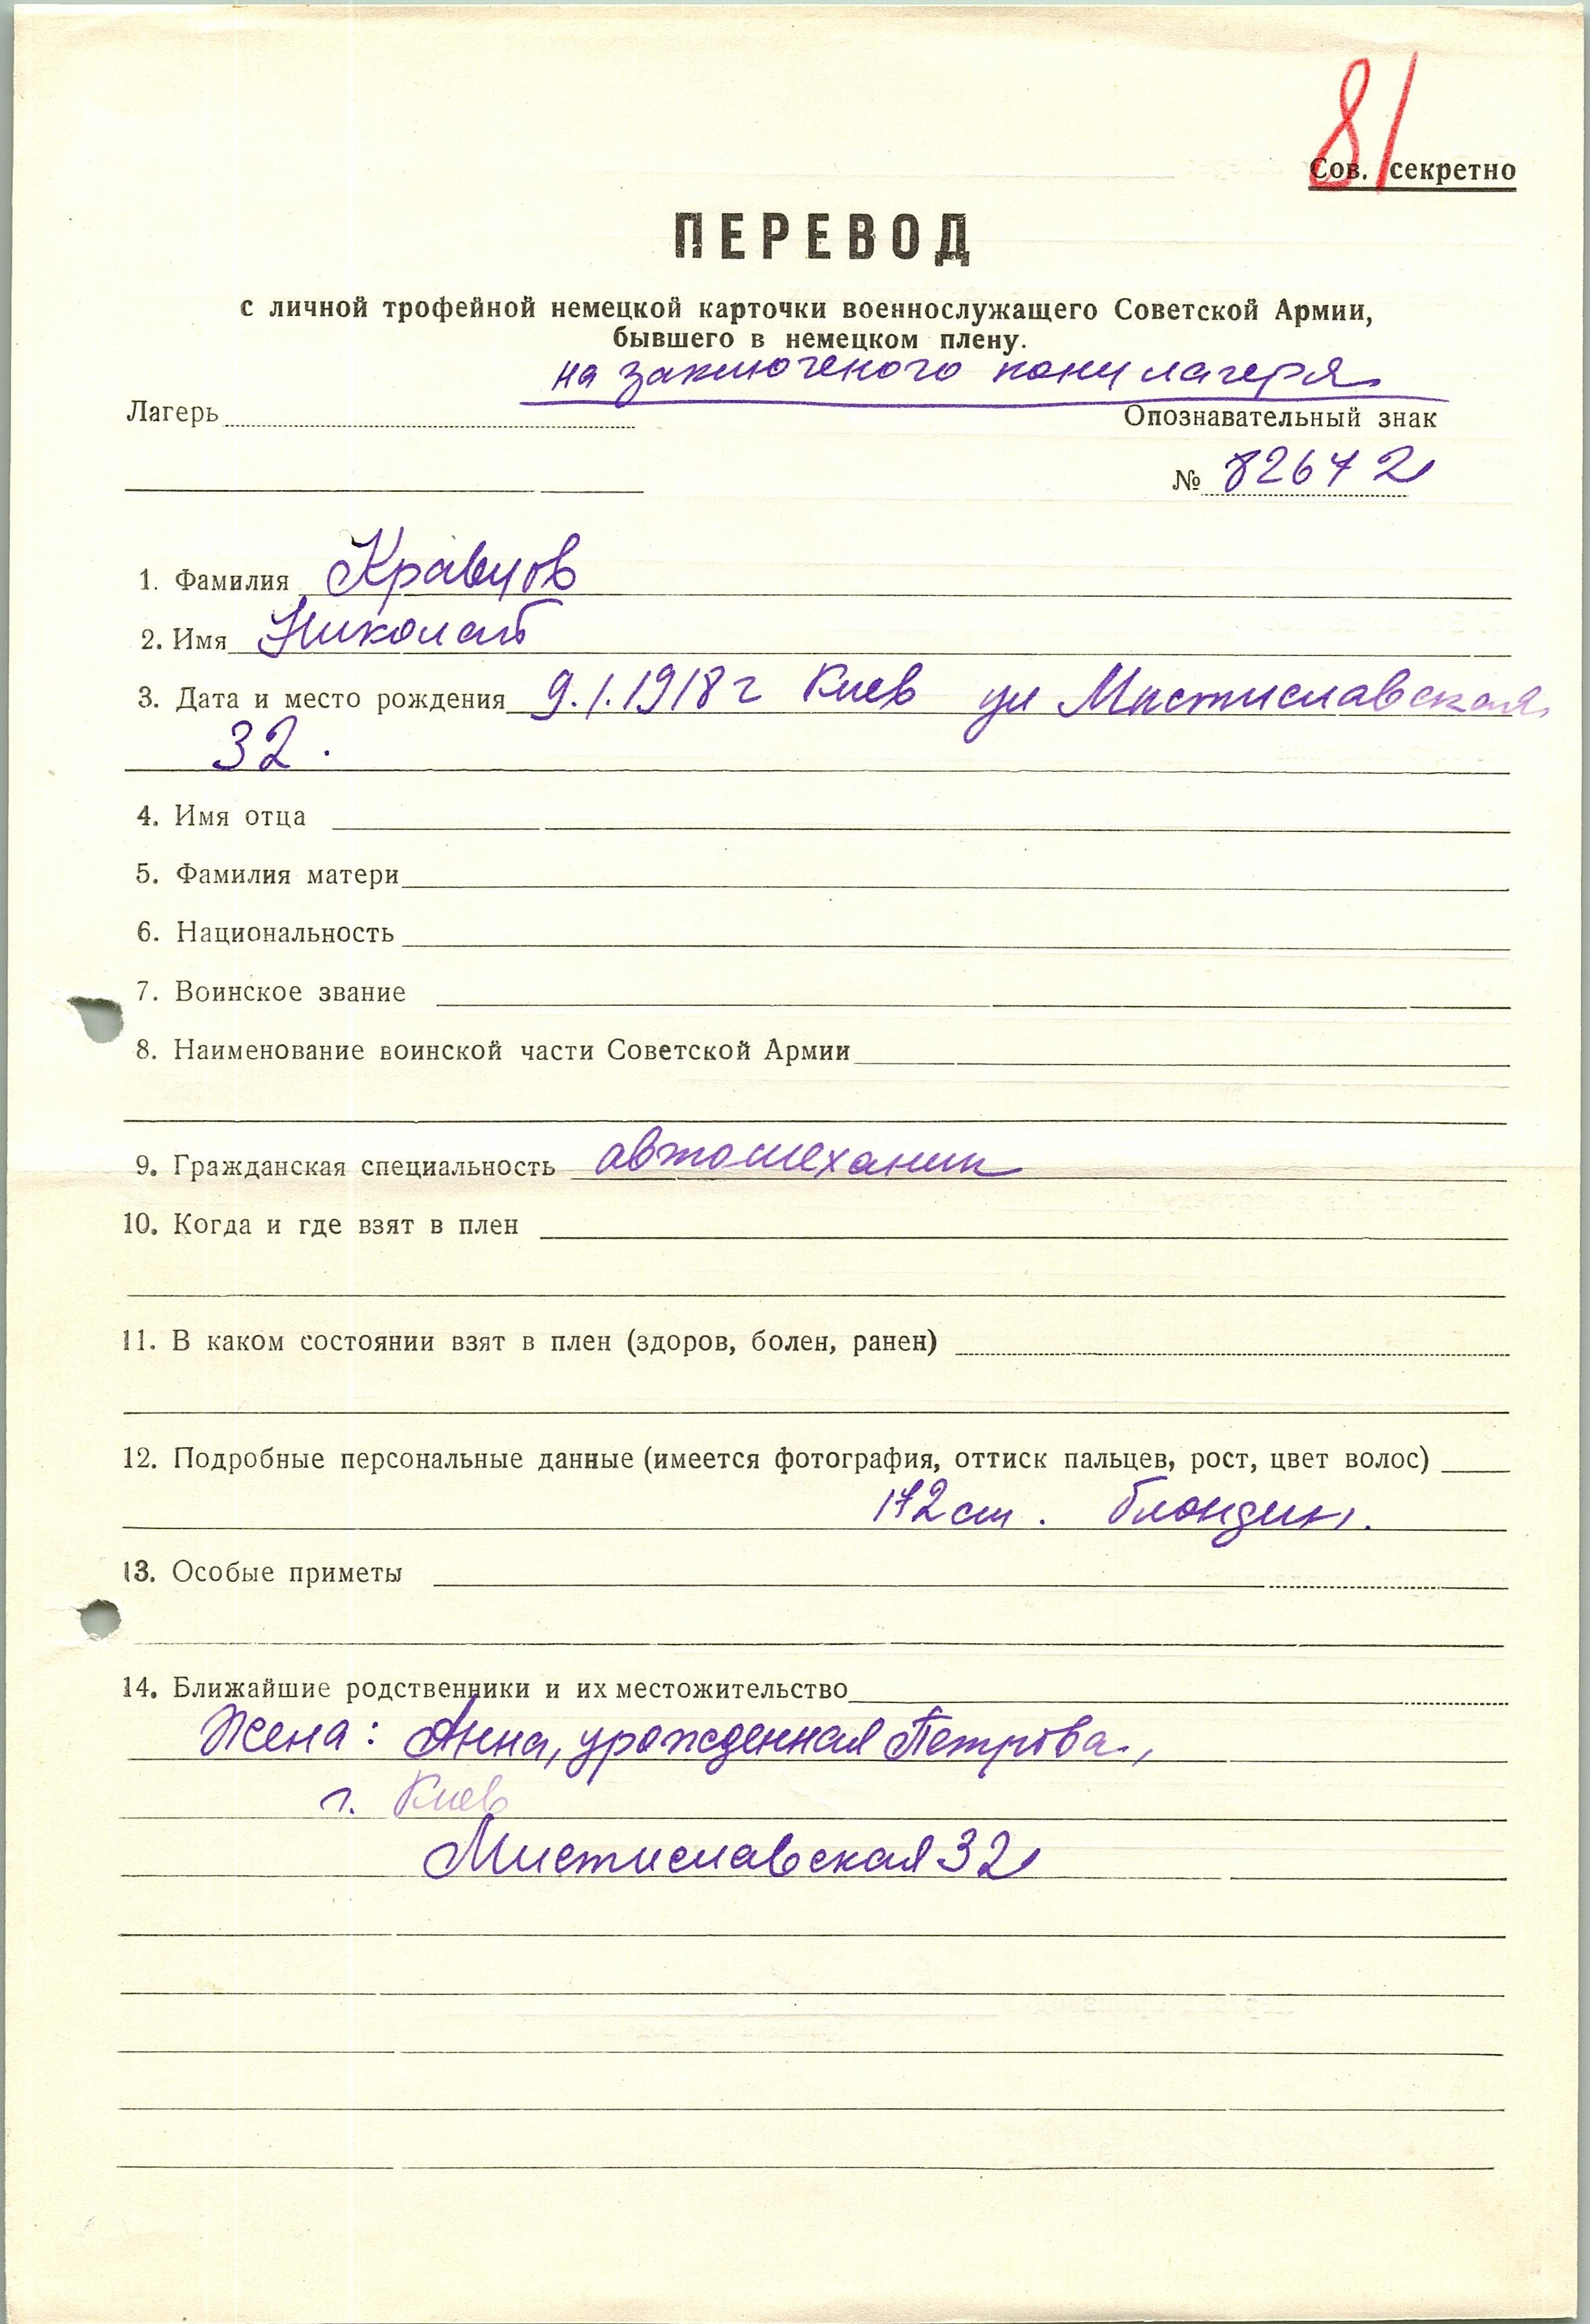 81
Сов. секретно
ПЕРЕВОД
с личной трофейной немецкой карточки военнослужащего Советской Армии,
бывшего в немецком плену.
на заключеного концлагеря
Лагерь
Опознавательный знак
№ 82672
1. Фамилия Кравцов
2. Имя Николай
3. Дата и место рождения 9.1.1918 г Киев ул Мистиславская
32.
4. Имя отца
5. Фамилия матери
6. Национальность
7. Воинское звание
8. Наименование воинской части Советской Армии
9. Гражданская специальность автомеханик
10. Когда и где взят в плен
11. В каком состоянии взят в плен (здоров, болен, ранен)
12. Подробные персональные данные (имеется фотография, оттиск пальцев, рост, цвет волос)
172 см. блондин.
13. Особые приметы
14. Ближайшие родственники и их местожительство
Жена: Анна, урожденная Петрова,
г. Киев
Мистиславская 32